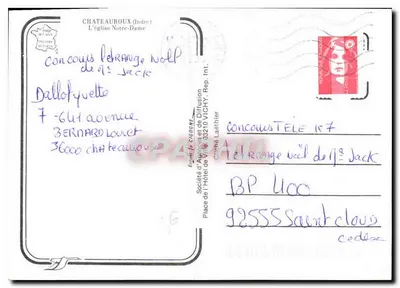 CHATEAUROUX (Indre)
L'église Notre-Dame
Concours l'étrange Noël
de Mr Jack
Dallot yvette
7 - 641 avenue
BERNARD Louvet
36000 chateauroux
Société d'Agences et de Diffusion
Place de l'Hôtel de Ville 03210 VICHY. Rep. Int.
concours TELE K7
l'etrange noël de Mr Jack
BP 400
92555 Saint cloud
cedex